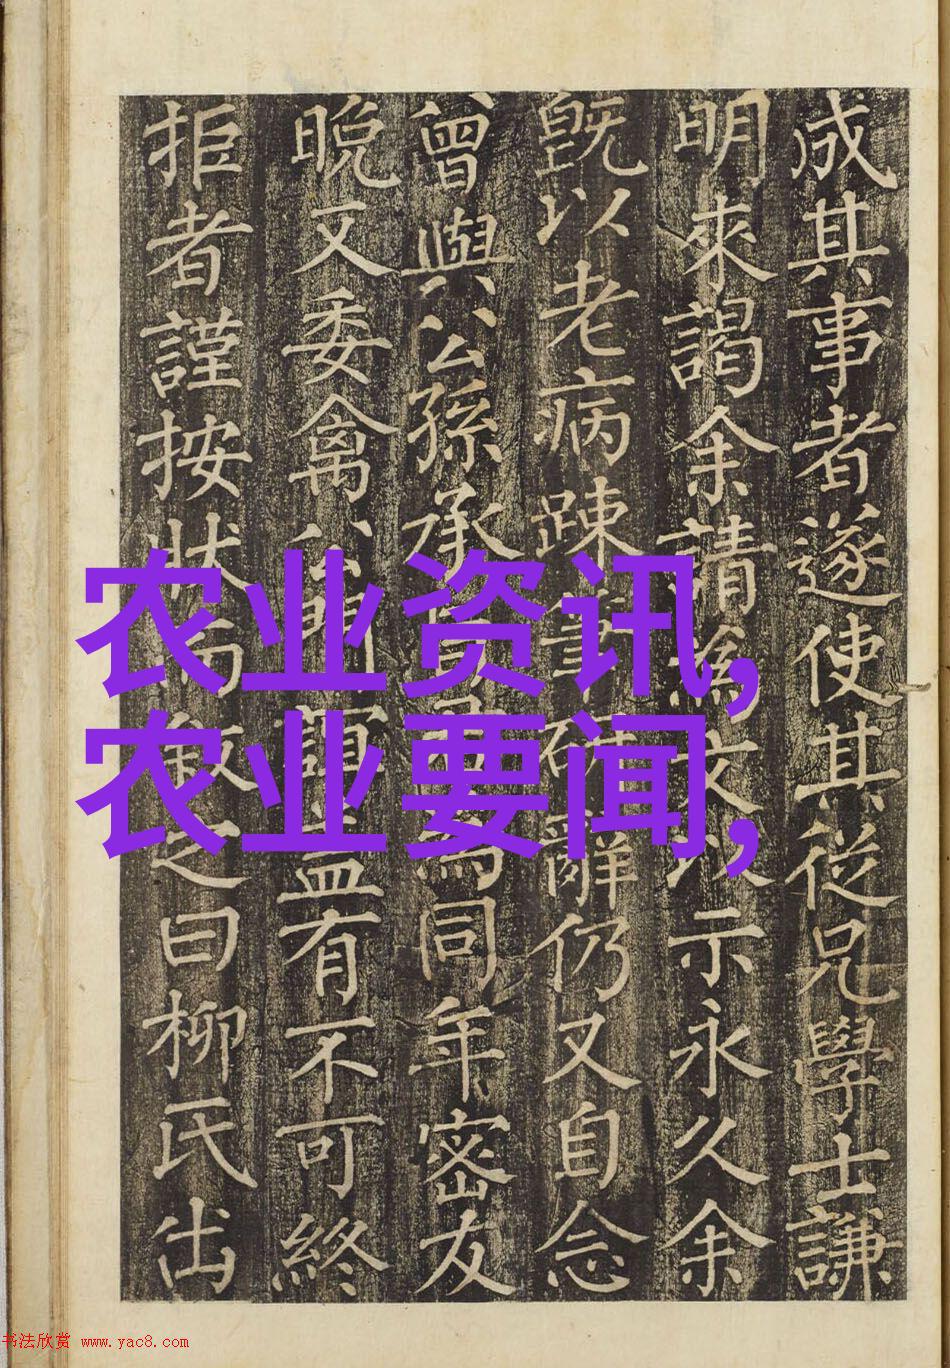 成其事者遂使其從兄學士謙
明來謁余請為文以示永久余
既以老病踈筆硯辭仍又自念
曾與公孫承為同年密友
晚又委禽公門誼盖有不可終
拒者謹按狀為敘之曰柳氏出
农业资讯,
农业要闻,
书法欣赏 www.yac8.com